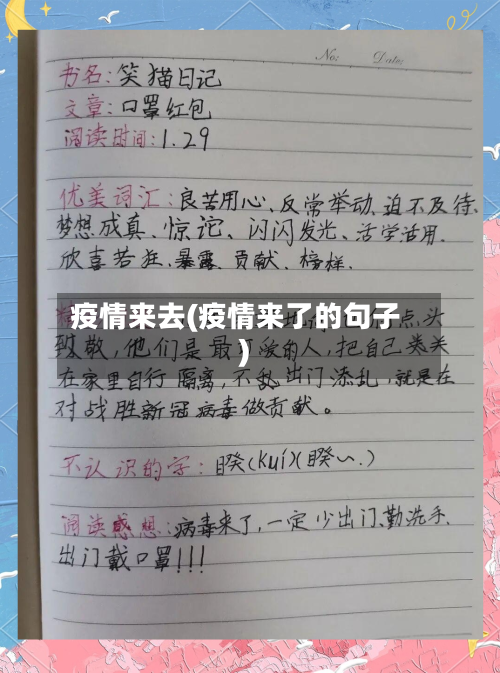 No:
Date:
书名:笑猫日记
文章:口罩红包
阅读时间:1.29
优美词汇:良苦用心、反常举动、迫不及待、
梦想成真、惊诧、闪闪发光、活学活用、
欣喜若狂、暴露、贡献、榜样、
疫情来去(疫情来了的句子
)
点,头
致敬,他们是最可爱的人,把自己关
在家里自行隔离,不乱出门添乱,就是在
对战胜新冠病毒做贡献。
不认识的字:睽(kuí)(睽~.)
阅读感想:病毒来了,一定少出门、勤洗手、
出门戴口罩!!!